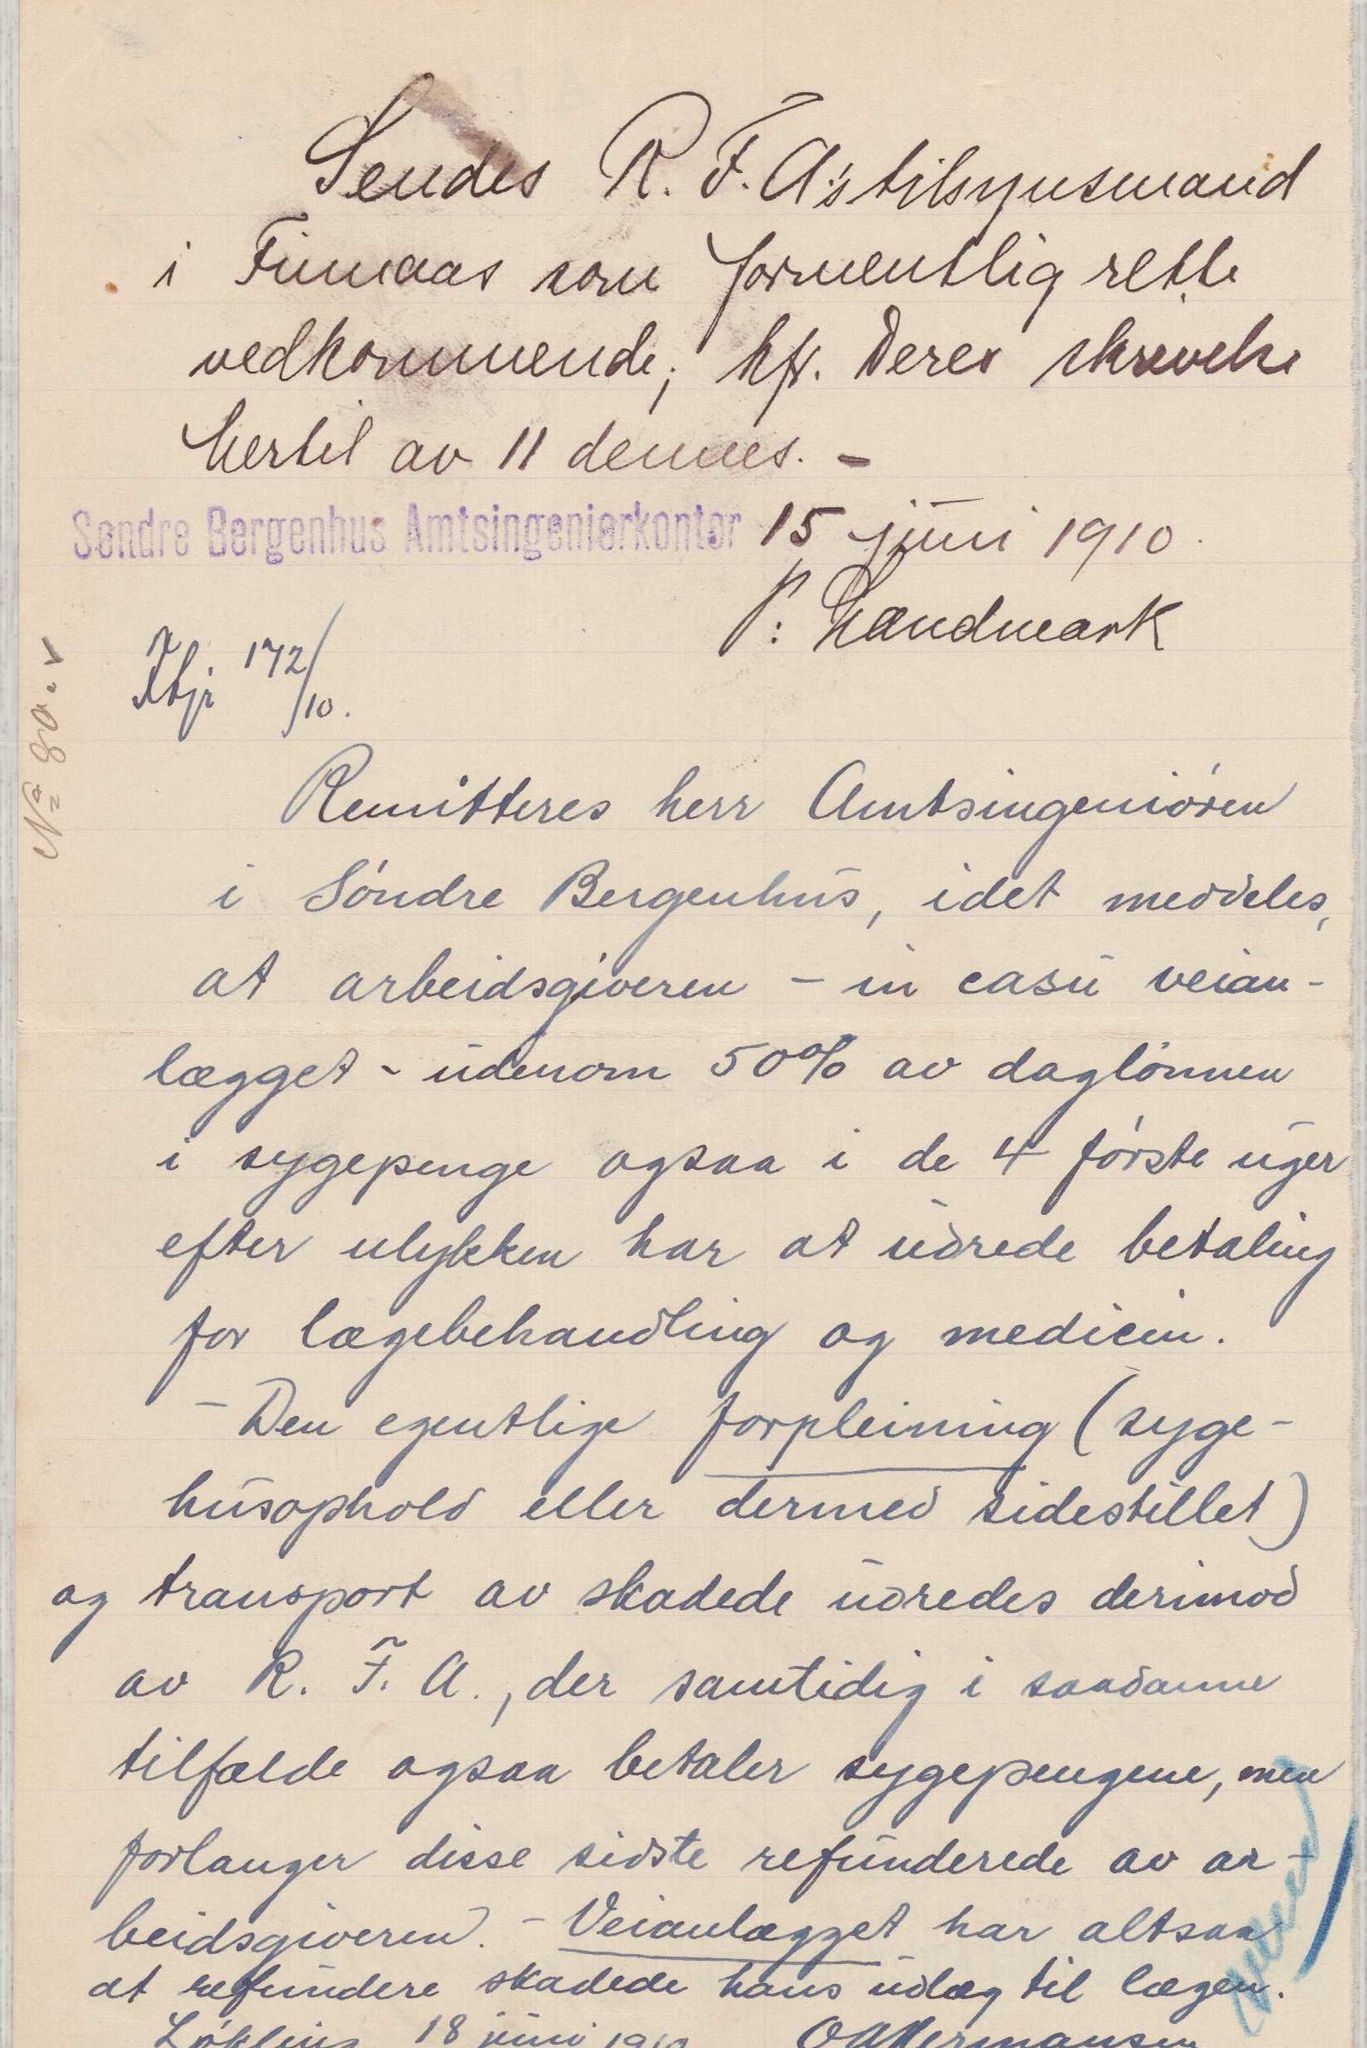 Sendes R. F. A's tilsynsmand
i Finnaas som formentlig rette
vedkommende; kfr. Deres skrivelse
hertil av 11 dennes. -
Søndre Bergenhus Amtsingeniørkontor 15 juni 1910.
P: Landmark
172/10.
No 80. v
Remitteres herr Amtsingeniören
i Söndre Bergenhus, idet meddeles,
at arbeidsgiveren - in casu veian-
lægget - udenom 50% av daglönnen
i sygepenge ogsaa i de 4 förste uger
efter ulykken har at udrede betaling
for lægebehandling og medicin.
- Den egentlige forpleining (syge-
husophold eller dermed sidestillet)
og transport av skadede udredes derimod
av R. F. A., der samtidig i saadanne
tilfælde ogsaa betaler sygepengene, men
forlanger disse sidste refunderede av ar-
beidsgiveren. - Veianlægget har altsaa
at refundere skadede hans udlæg til lægen.
18 juni 1910